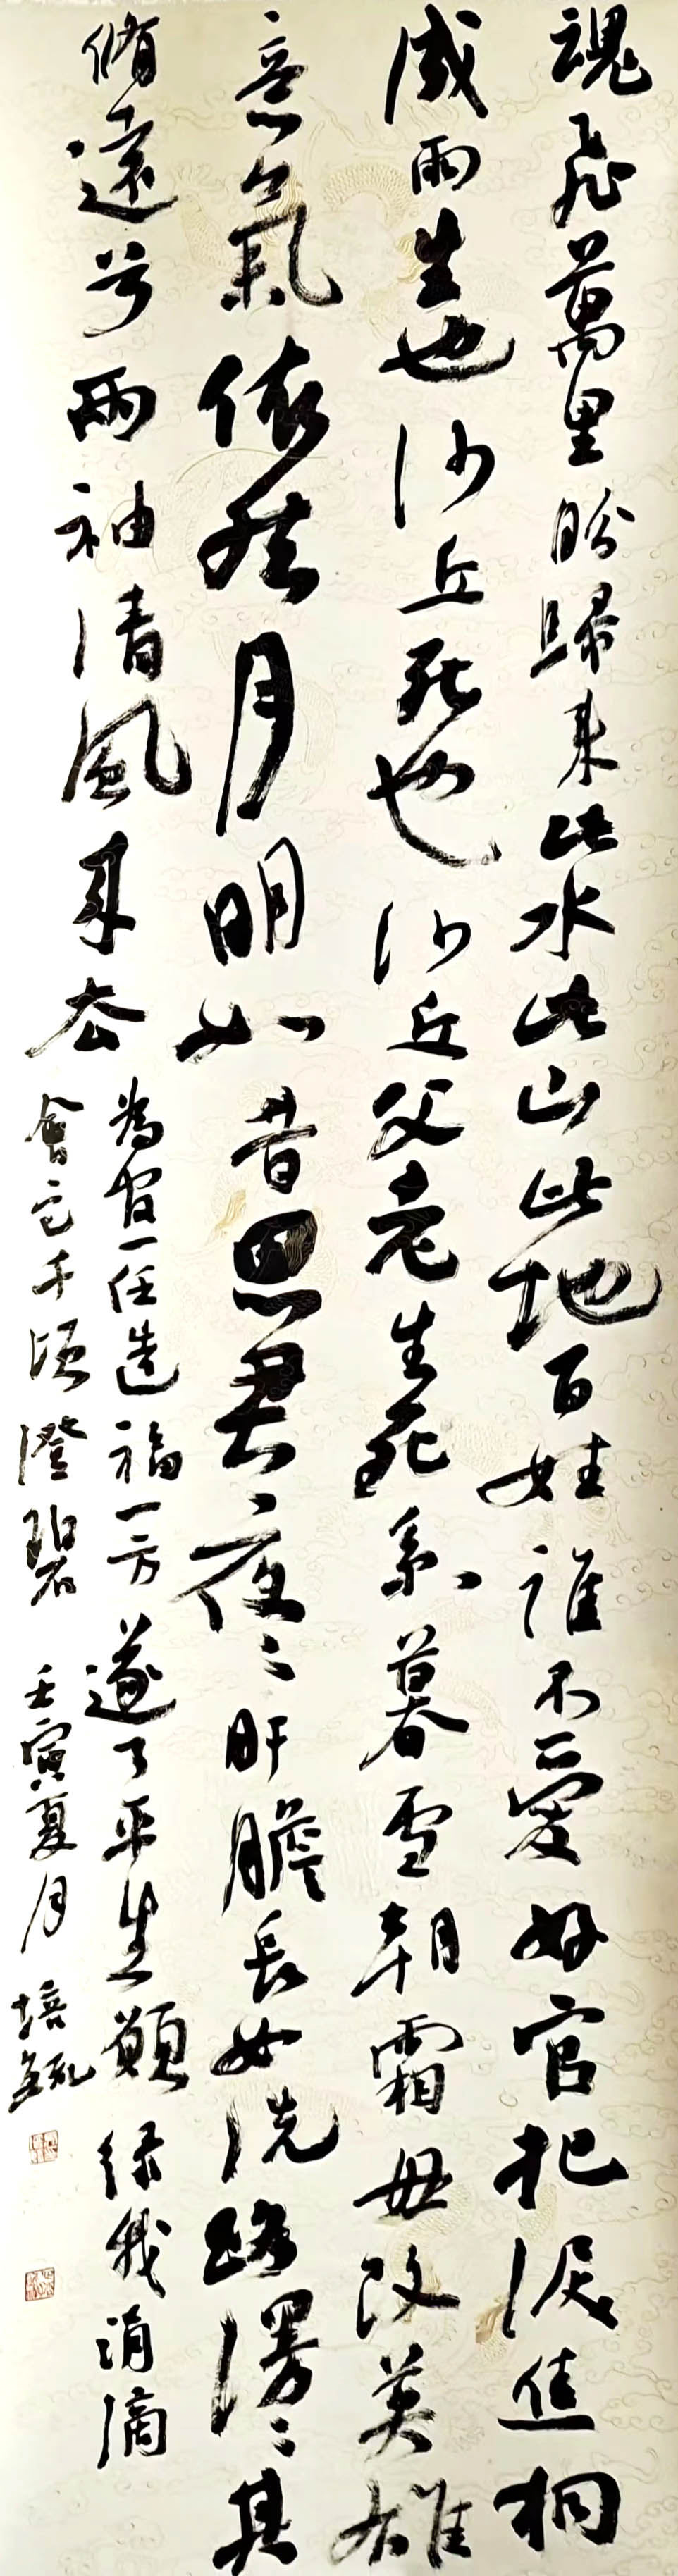 魂飛萬里盼歸來此水此山此地百姓誰不愛好官把淚焦桐
成雨生也沙丘死也沙丘父老生死系暮雪朝霜毋改英雄
意氣依然月明如昔思君夜〻肝膽長如洗路漫〻其
脩遠兮兩袖清風來去
為官一任造福一方遂了平生願綠我涓滴
會它千頃澄碧 壬寅夏月 培毓